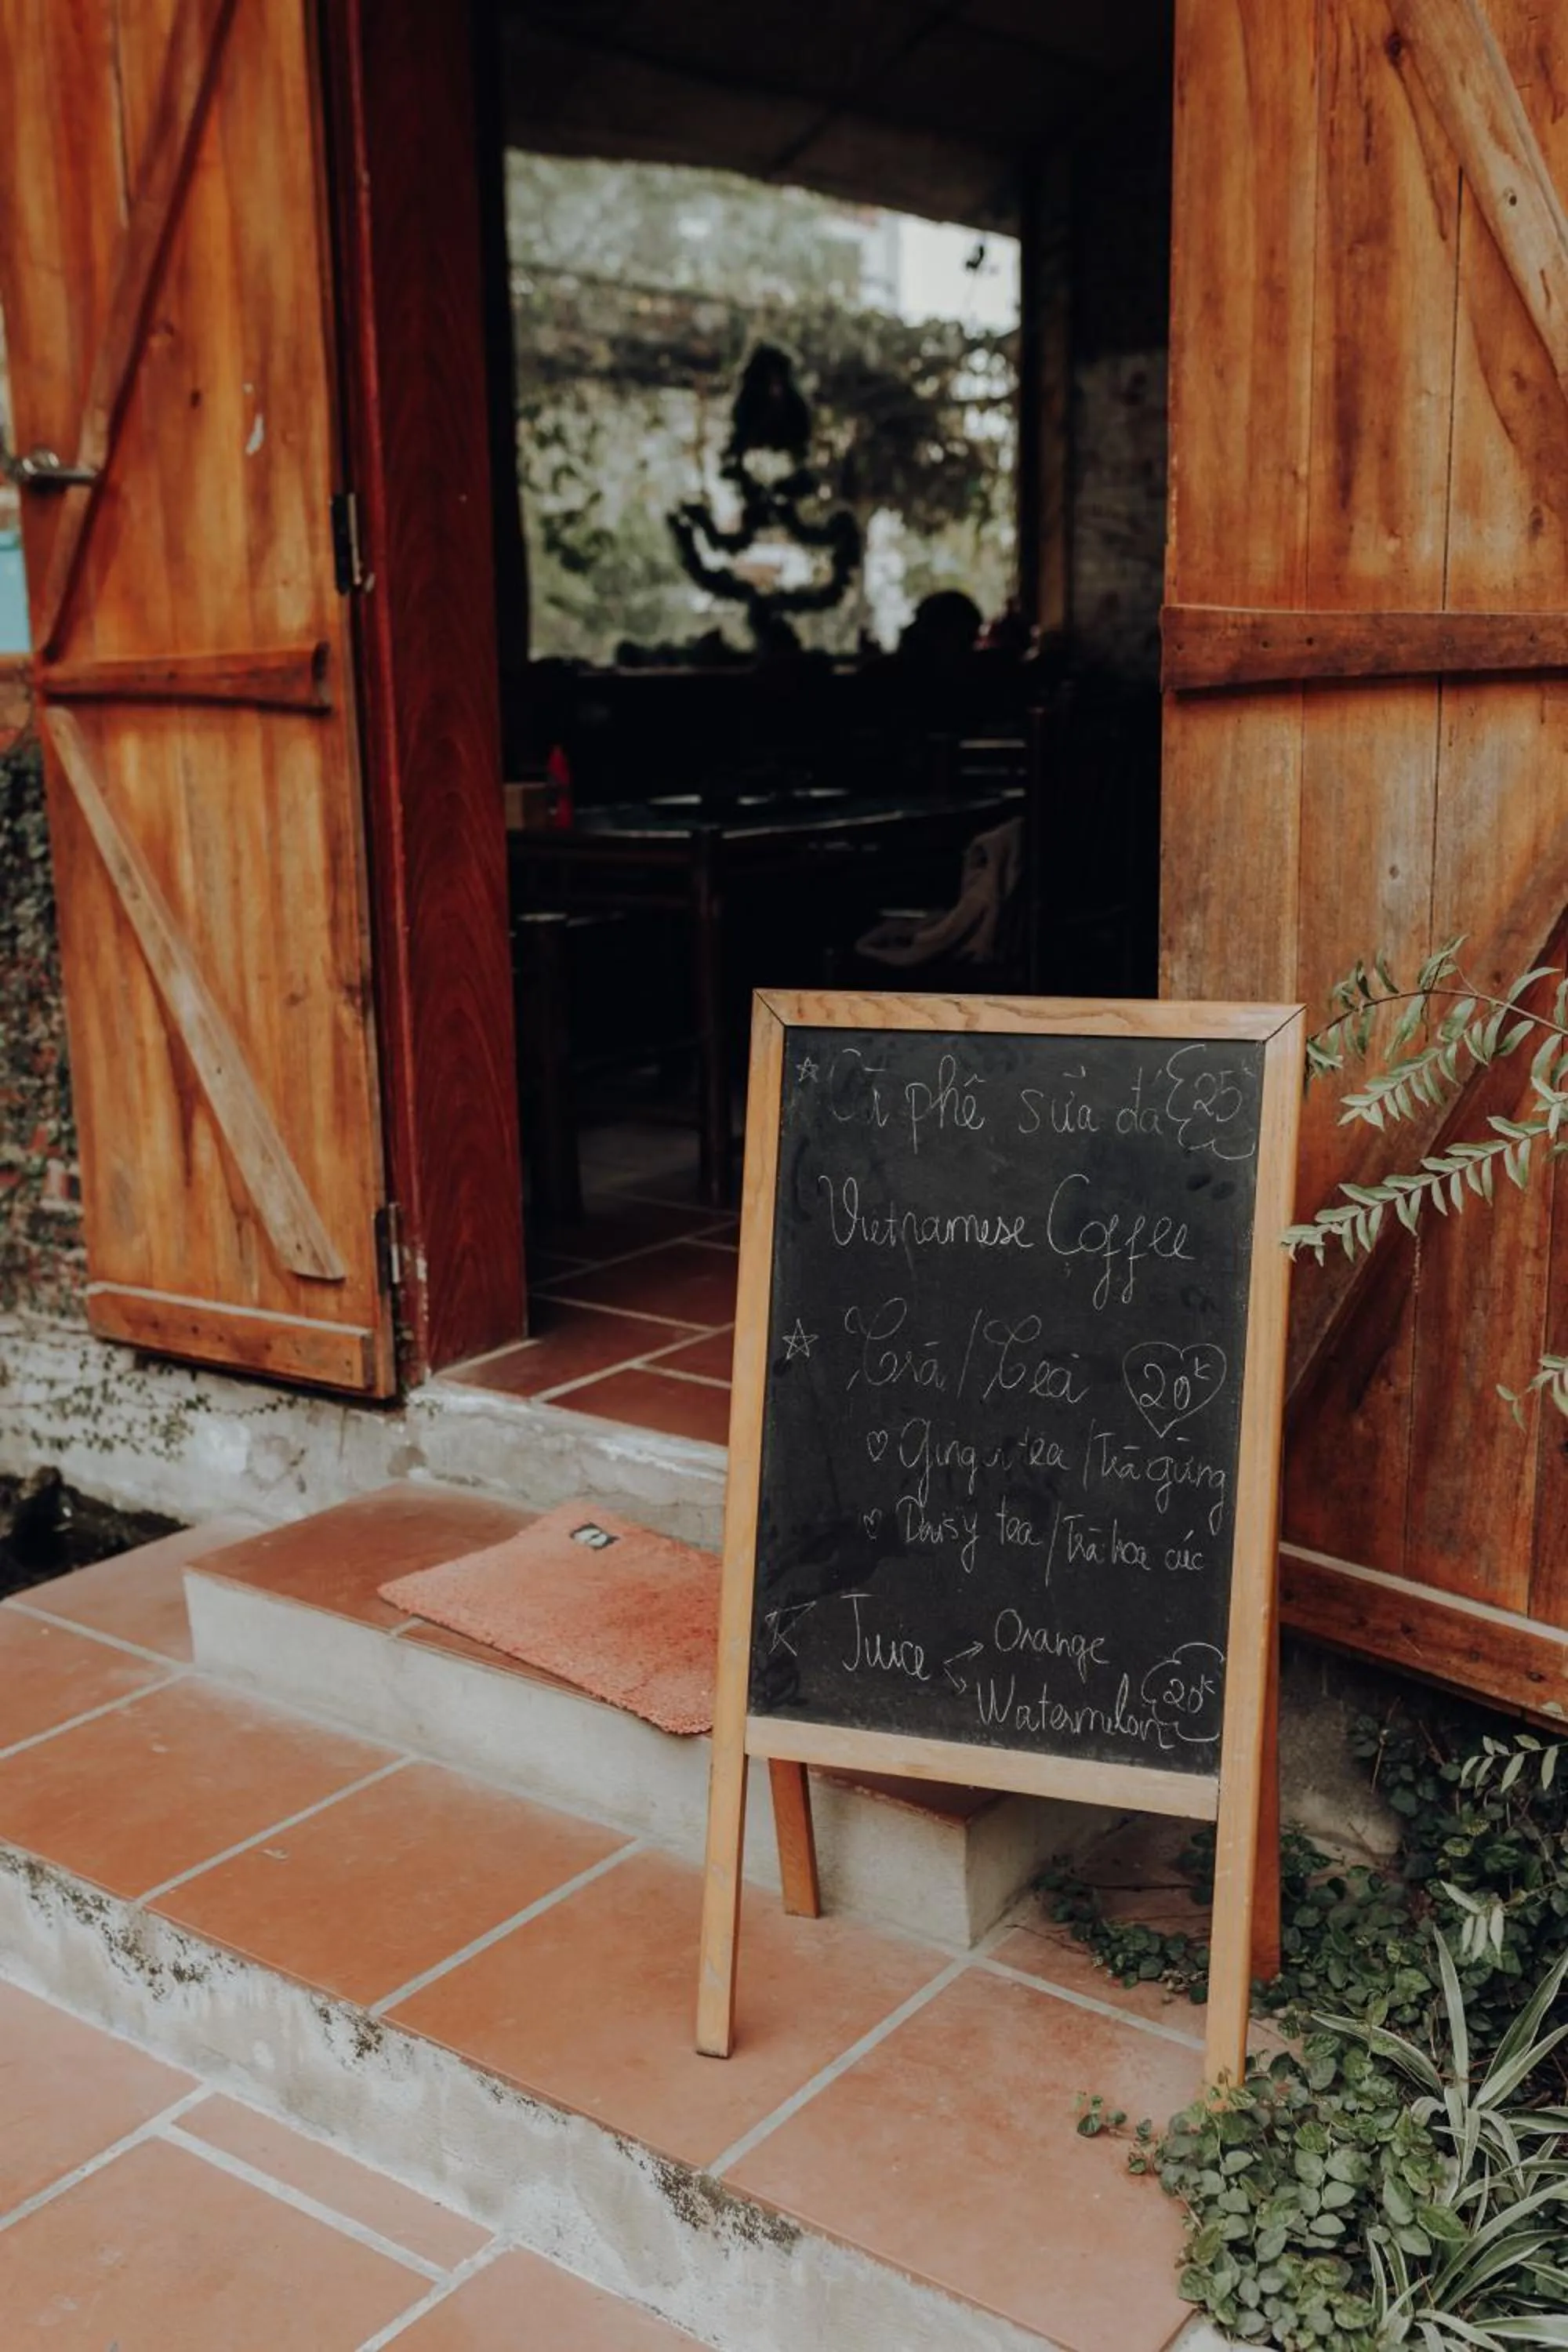 Cà phê sữa đá 25k
Vietnamese Coffee
Trà / Tea 20k
Ginger tea / Trà gừng
Daisy tea / Trà hoa cúc
Juice Orange
Watermelon 20k